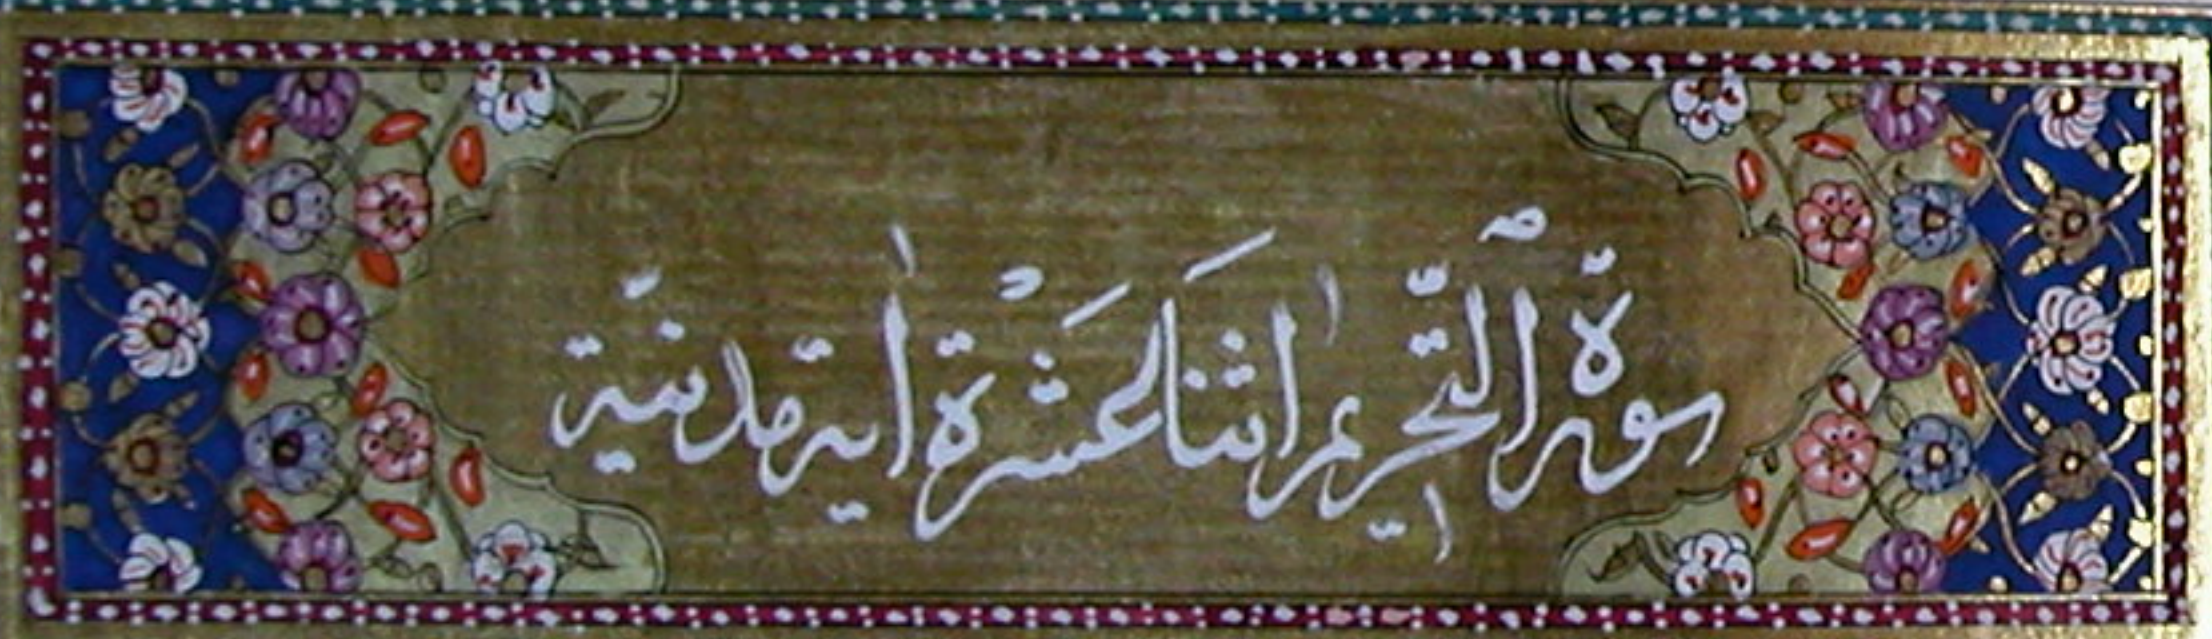 سورة ٱلتّحريم اثنتا عَشَرْة اٰية مدنيّة